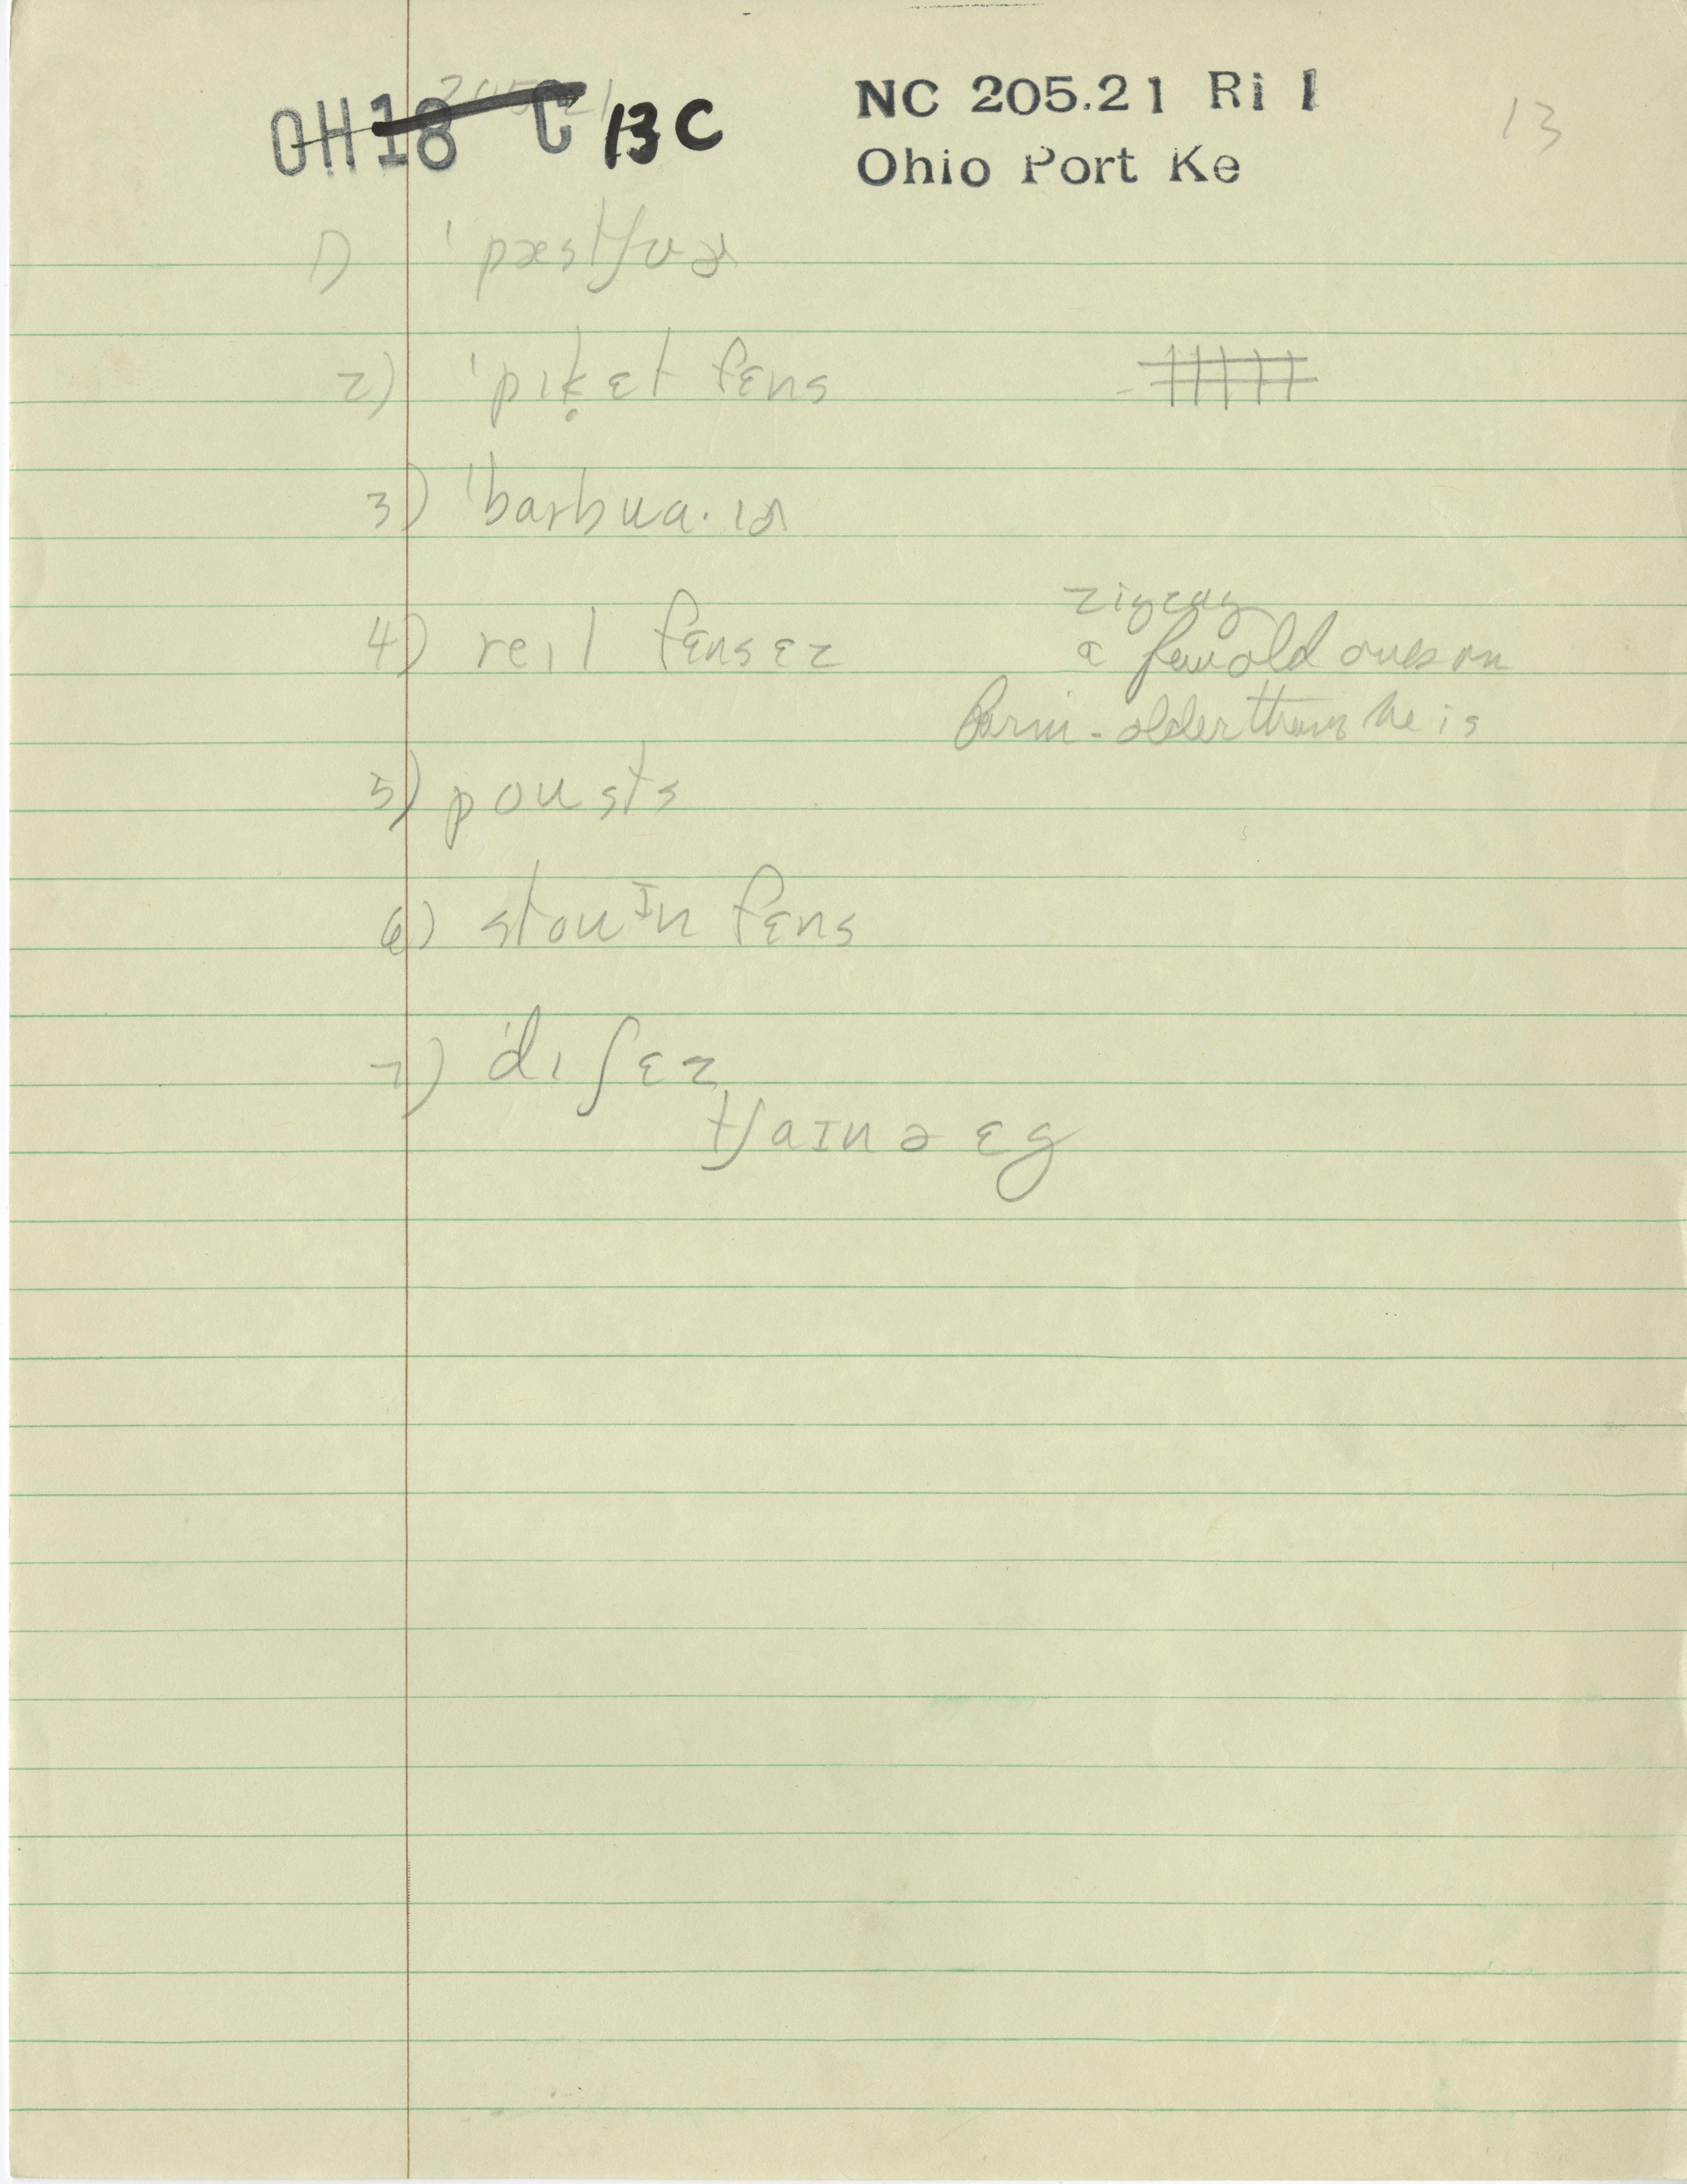 OH18 C 13C
NC 205.21 Ri 1
Ohio Port Ke
13
1) ˈpæstʃʊɚ
2) ˈpɪk̬ɛt fɛns
3) ˈbarbwa·ɪɚ
zigzag
4) reɪl fɛnsɛz a few old ones on
farm - older than he is
5) poʊsts
6) stoʊᴵn fɛns
7) ˈdɪʃɛz
tʃaɪnə ɛg